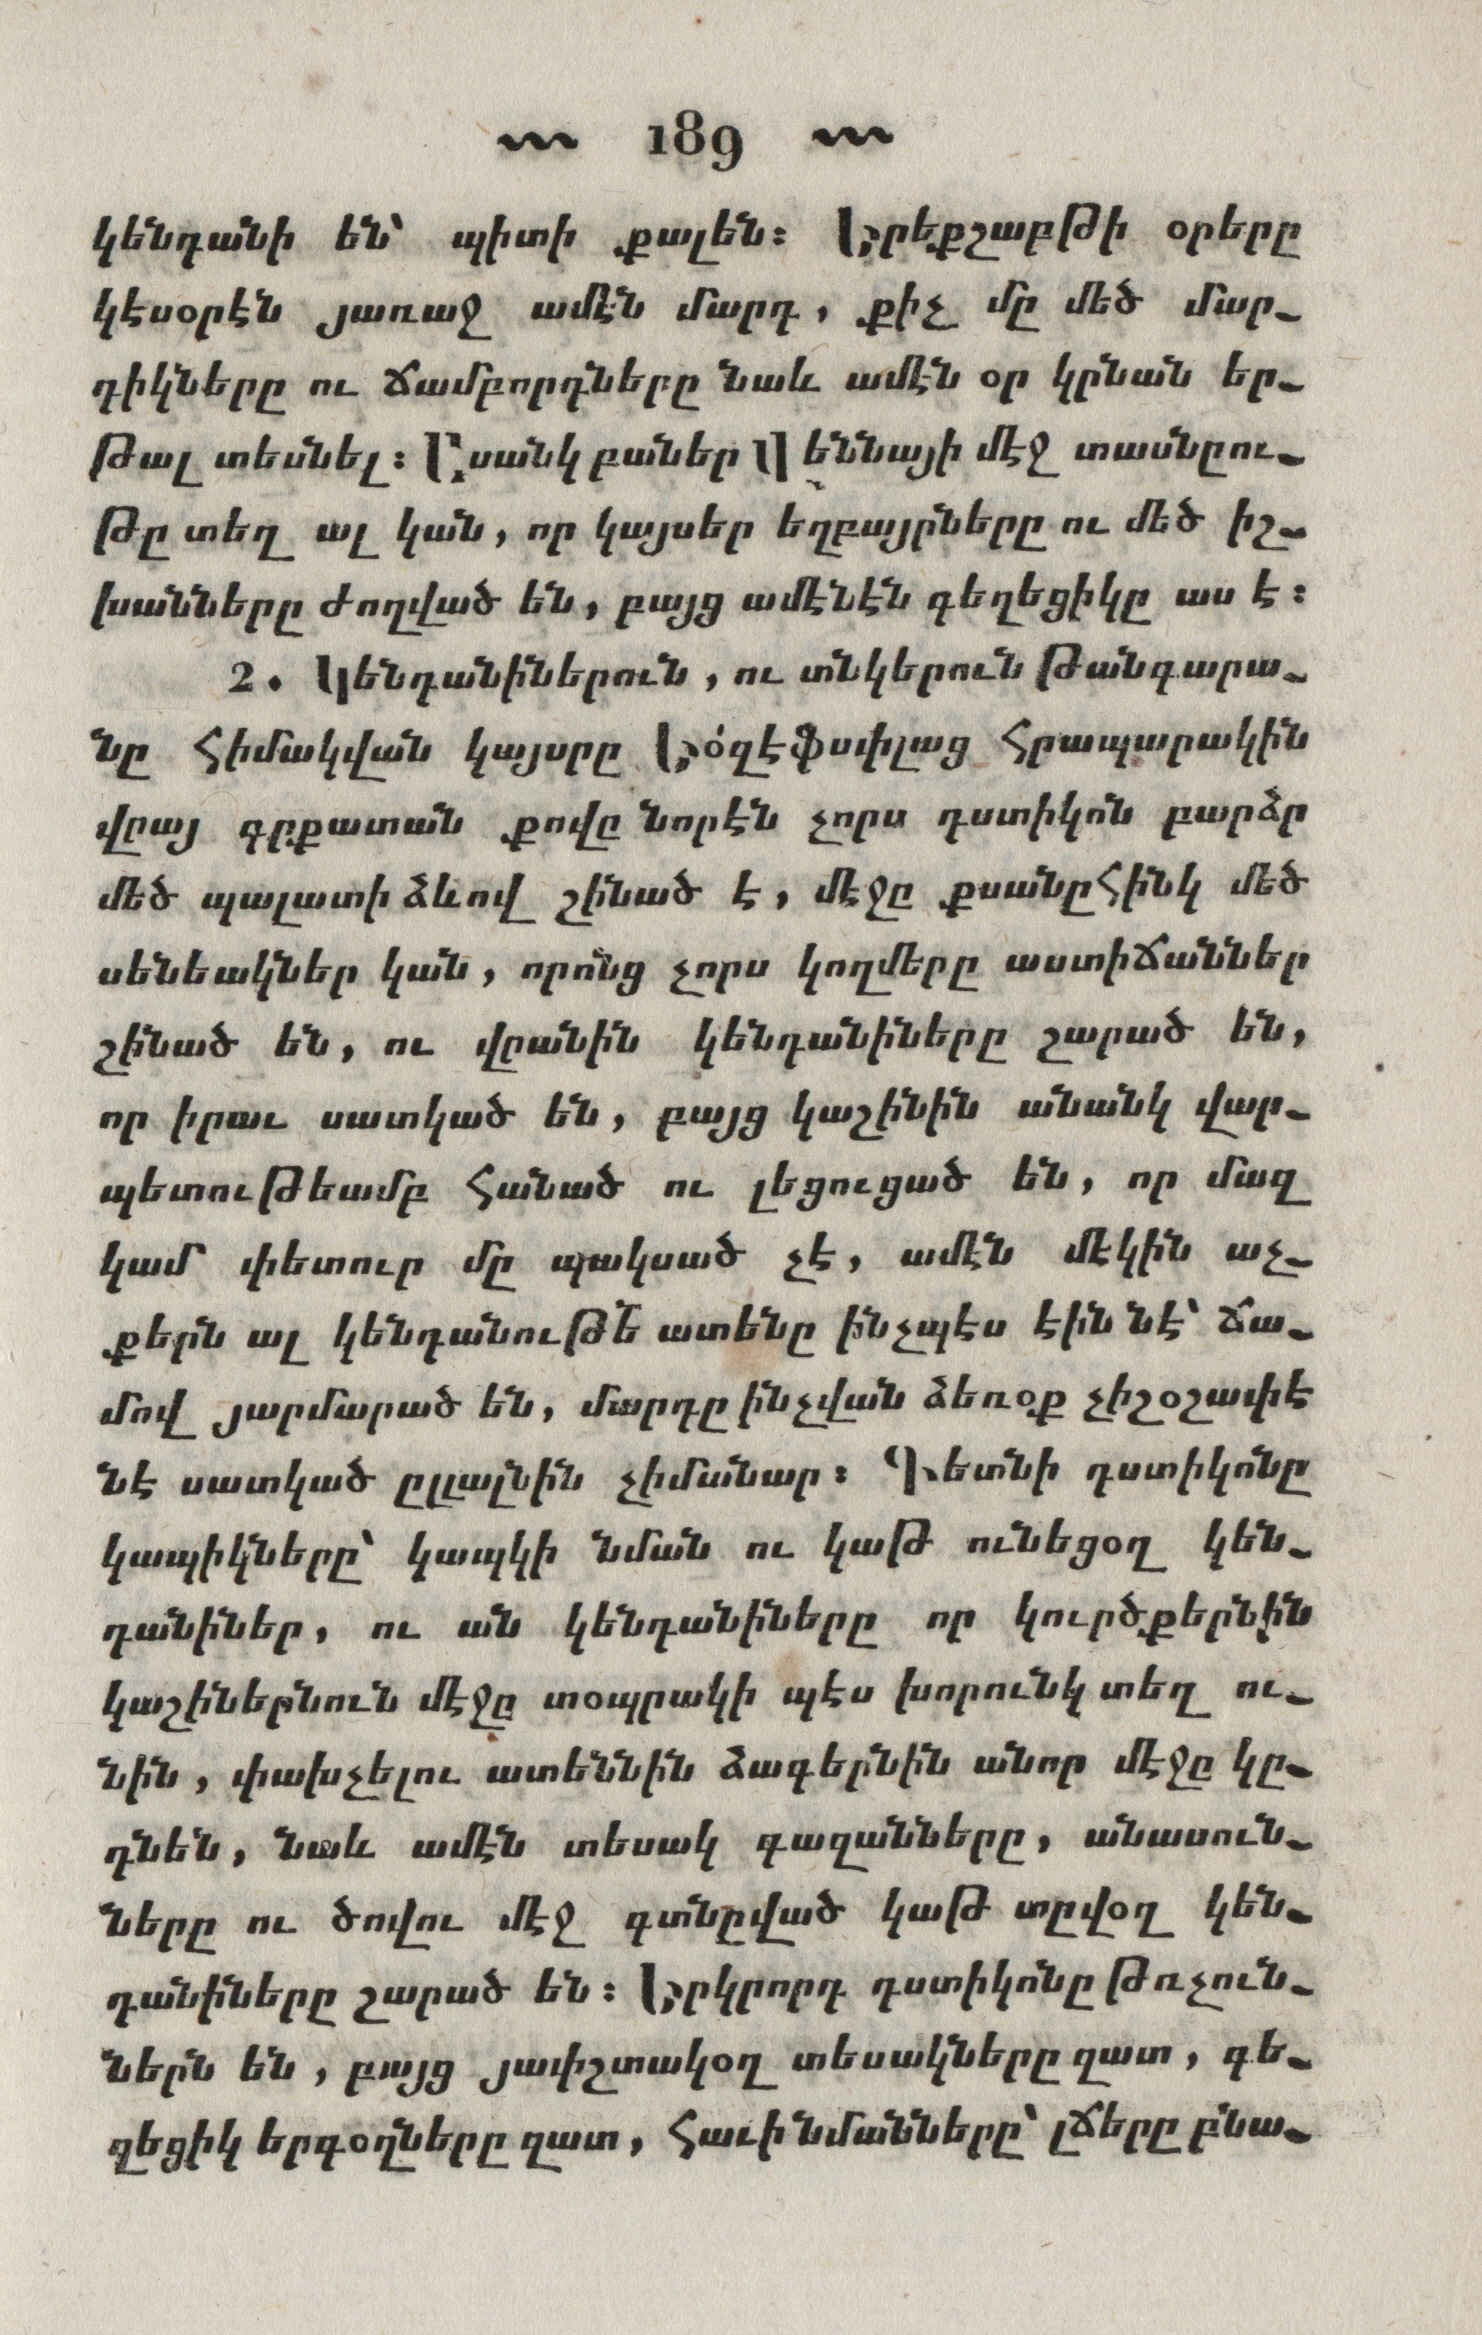 189
կենդանի են՝ պիտի քալեն։ Երեքշաբթի օրերը
կէսօրէն յառաջ ամէն մարդ, քիչ մը մեծ մար֊
դիկները ու ճամբորդները նաև ամէն օր կրնան եր֊
թալ տեսնել։ Ըսանկ բաներ Վեննայի մէջ տասնըու֊
թը տեղ ալ կան, որ կայսեր եղբայրները ու մեծ իշ֊
խանները ժողված են, բայց ամէնէն գեղեցիկը աս է։
2. Կենդանիներուն, ու տնկերուն թանգարա֊
նը հիմակվան կայսրը Եօ՛զէֆսփլաց հրապարակին
վըայ գրքատան քովը նորէն չորս դստիկոն բարձր
մեծ պալատի ձևով շինած է, մէջը քսանըհինկ մեծ
սենեակներ կան, որոնց չորս կողմերը աստիճաններ
շինած են, ու վըանին կենդանիները շարած են,
որ իրաւ սատկած են, բայց կաշինին անանկ վար֊
պետութեամբ հանած ու լեցուցած են, որ մազ
կամ փետուր մը պակսած չէ, ամէն մէկին աչ֊
քերն ալ կենդանութե՟ ատենը ինչպէս էին նէ՝ ճա֊
մով յարմարած են, մարդը ինչվան ձեռօք չիշօշափէ
նէ սատկած ըլլալնին չիմանար։ Գետնի դստիկոնը
կապիկները՝ կապկի նման ու կաթ ունեցօղ կեն֊
դանիներ, ու ան կենդանիները որ կուրծքերնին
կաշիներնուն մէջը տօպրակի պէս խորունկ տեղ ու֊
նին, փախչելու ատեննին ձագերնին անոր մէջը կը֊
դնեն, նաև ամէն տեսակ գազանները, անասուն֊
ները ու ծովու մէջ գտնըված կաթ տըվօղ կեն֊
դանիները շարած են։ Երկրորդ դստիկոնը թռչուն֊
ներն են, բայց յափշտակօղ տեսակները զատ, գե֊
ղեցիկ երգօղները զատ, հաւի նմանները՝ լճերը բնա֊